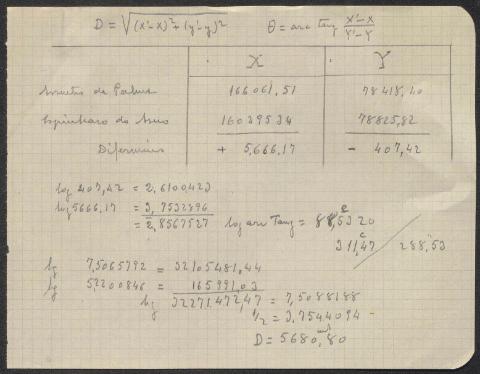 D = √(x'-x)²+(y'-y)² θ = arc Tang X'-X / Y'-Y
X Y
de 166061,51 78418,40
160395,34 78825,82
+ 5,666,17 - 407,42
log 407,42 = 2,6100423
log 5666,17 = 3,7532896
= 2,8567527 log arc Tang = 88,5320
311,47 / 288,53
lg 7,5065792 = 32105481,44
lg 5,2200846 = 165991,03
lg 32271472,47 = 7,5088188
1/2 = 3,7544094
D = 5680,80